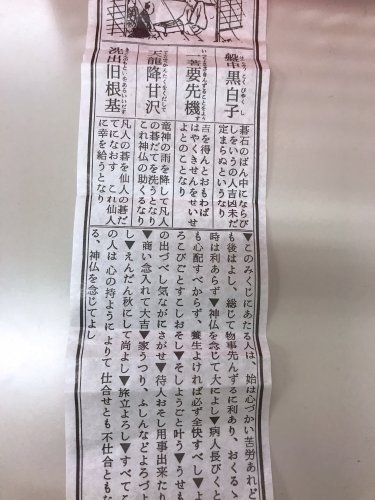 盤中黒白子
碁石のばん中にならび
しをいうの人吉凶未だ
定まらぬというなり
一著要先機
吉を得んとおもわば
はやくきせんをせいせ
よとのことなり
天龍降甘沢
竜神の雨を降して凡人
の碁だてを洗うとなり
これ神仏の助くるなり
洗出旧根基
凡人の碁を仙人の碁だ
てになおす、これ仙人
に幸を給うとなり
▼このみくじにあたる人は、始は心づかい苦労あれど
も後はよし、総じて物事先んずるに利あり、おくるる
時は利あらず▼神仏を念じて大によし▼病人長びくと
も心配すべからず、養生よければ必ず全快すべし▼よ
ろこびごとすこしおそし▼そしようごと叶う▼うせも
の出づべし気ながにさがせ▼待人おそし用事出来たり
▼商い念入れて大吉▼家うつり、ふしんなどよろづよ
し▼えんだん秋にして尚よし▼旅立よろし▼すべてこ
の人は心の持ちようによりて仕合せとも不仕合ともな
る、神仏を念じてよし